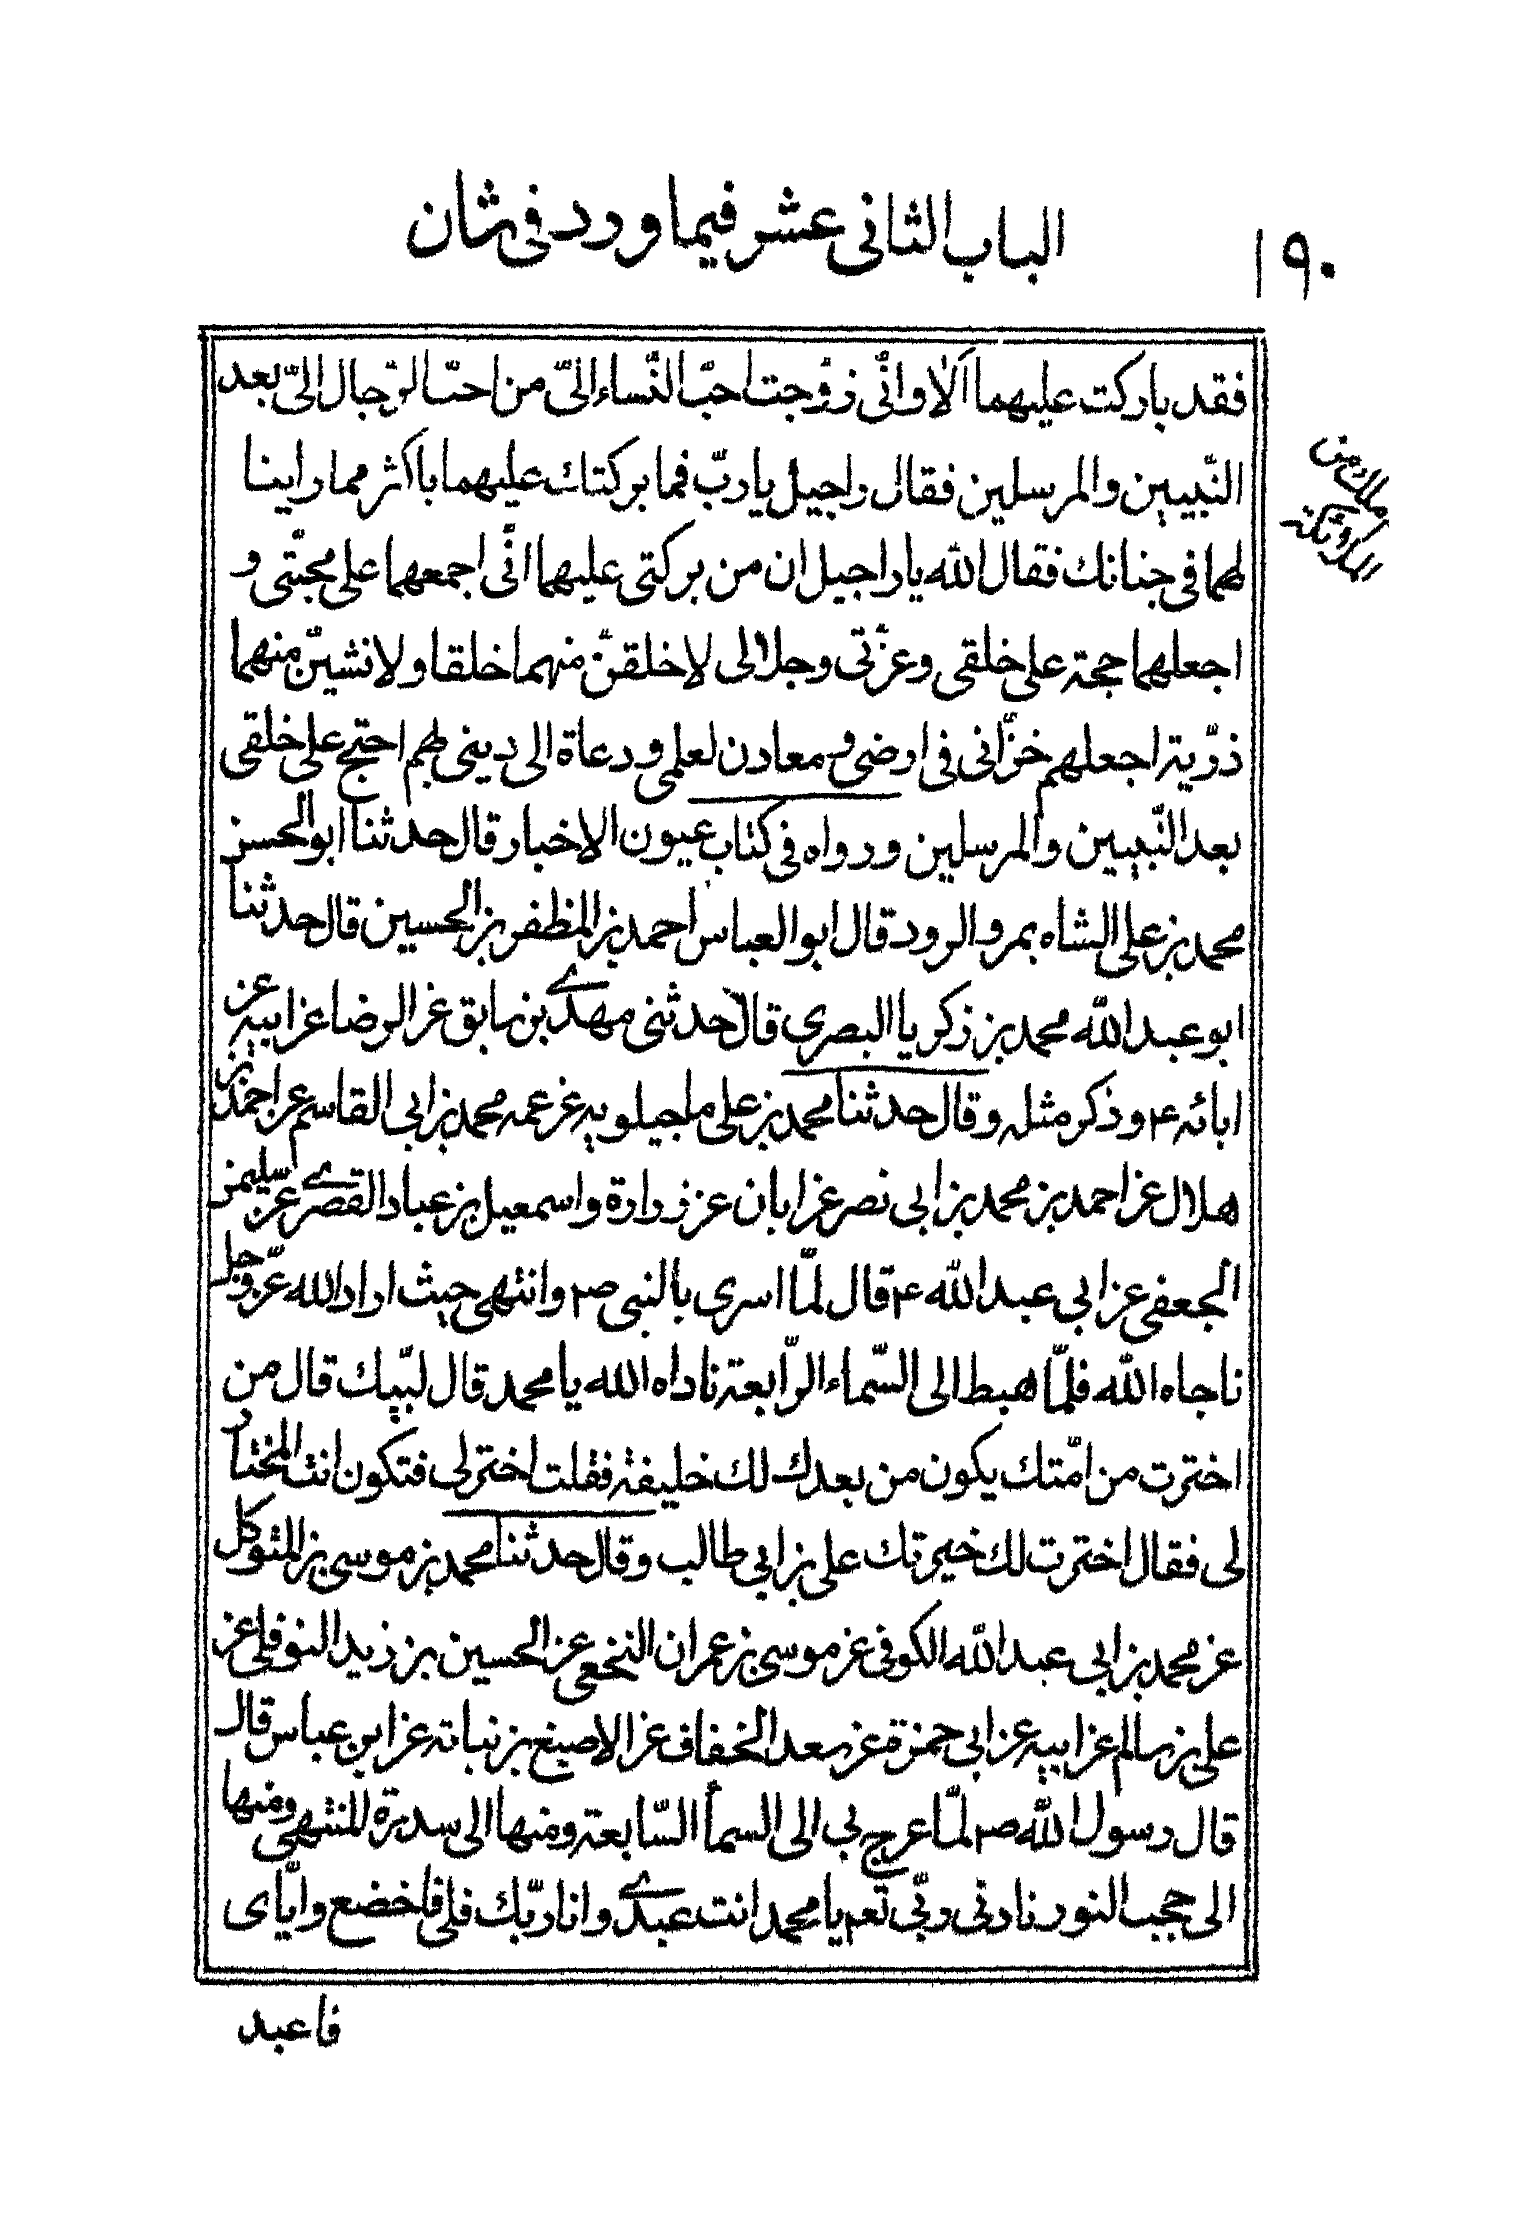 ١٩٠
الباب الثانى عشر فيما ورد فى شان
فقد باركت عليهما الا وانّى زوّجت احبّ النّساء الىّ من احبّ الرّجال الىّ بعد
النّبيين والمرسلين فقال راحيل يا ربّ فما بركتك عليهما باكثر مما راينا
ملك من
الملائكة
لهما فى جنانك فقال الله يا راحيل ان من بركتى عليهما انّى اجمعهما على محبّتى و
اجعلهما حجة على خلقى وعزّتى وجلالى لاخلقنّ منهما خلقا ولانشينّ منهما
ذرّية اجعلهم خزّانى فى ارضى ومعادن لعلمى ودعاة الى دينى بهم احتج على خلقى
بعد النّبيين والمرسلين ورواه فى كتاب عيون الاخبار قال حدثنا ابو الحسن
محمد بن على الشاه بمرو الرود قال ابو العباس احمد بن المظفر بن الحسين قال حدثنا
ابو عبد الله محمد بن زكريا البصرى قال حدثنى مهدى بن سابق عن الرضا عن ابيه عن
ابائه ع وذكر مثله وقال حدثنا محمد بن على ماجيلويه عن عمه محمد بن ابى القاسم عن احمد بن
هلال عن احمد بن محمد بن ابى نصر عن ابان عن زرارة واسمعيل بن عباد القصرى عن سليمن
الجعفى عن ابى عبد الله ع قال لمّا اسرى بالنبى ص وانتهى حيث اراد الله عزّ وجل
ناجاه الله فلمّا هبط الى السّماء الرّابعة ناداه الله يا محمد قال لبّيك قال من
اخترت من امّتك يكون من بعدك لك خليفة فقلت اختر لى فتكون انت المختار
لى فقال اخترت لك خيرتك على بن ابى طالب وقال حدثنا محمد بن موسى بن المتوكل
عن محمد بن ابى عبد الله الكوفى عن موسى بن عمران النخعى عن الحسين بن زيد النوفلى عن
على بن سالم عن ابيه عن ابى حمزة عن سعد الخفاف عن الاصبغ بن نباتة عن ابن عباس قال
قال رسول الله ص لمّا عرج بى الى السمأ السّابعة ومنها الى سدرة المنتهى ومنها
الى حجب النور نادنى ربّى تعم يا محمد انت عبدى وانا ربّك فلى فاخضع وايّاى
فاعبد